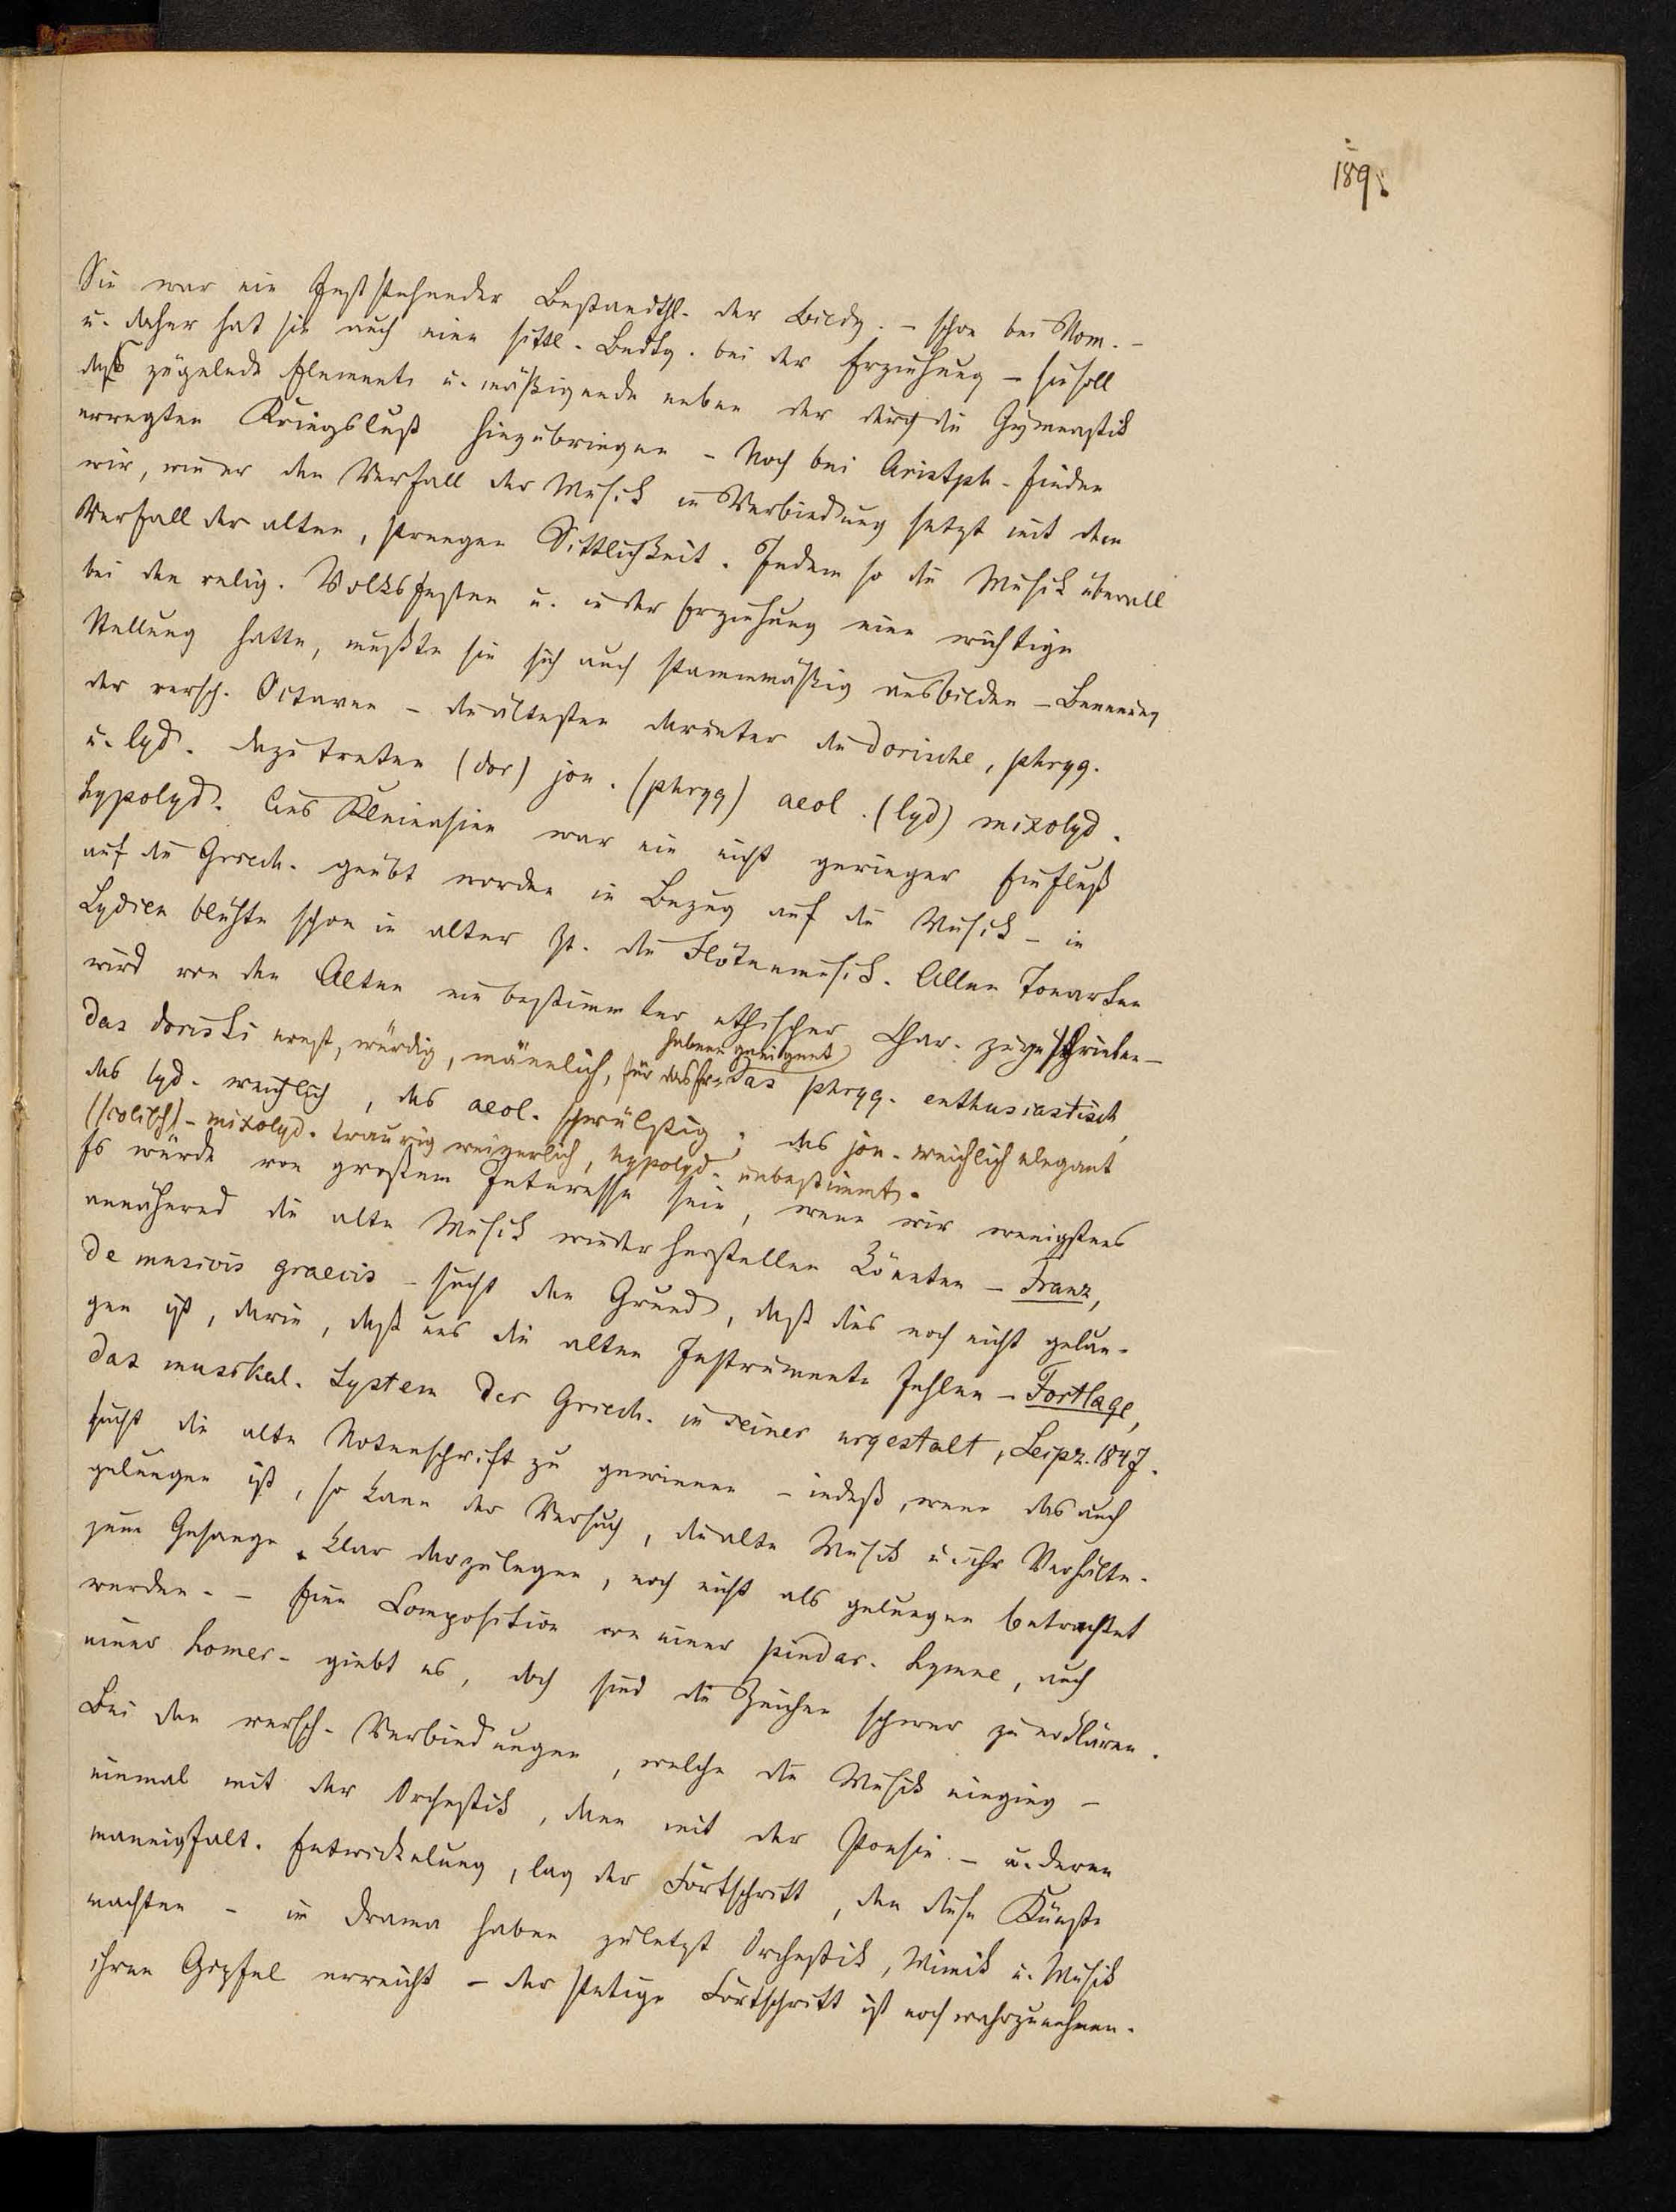 189.
Sie war ein feststehender Bestandthl. der Bildg. – schon bei Hom. –
u. daher hat sie auch eine sittl. Bedtg. bei der Erziehung – sie soll
das zügelnde Element u. mäßigende neben der durch die Gymnastik
erregten Kriegslust hinzubringen – Noch bei Aristph. finden
wir, wie er den Verfall der Musik in Verbindung setzt mit dem
Verfall der alten, strengen Sittlichkeit. Indem so die Musik überall
bei den relig. Volksfesten u. in der Erziehung eine wichtige
Stellung hatte, mußte sie sich auch stammmäßig ausbilden – Benennung
der versch. Octaven – die ältesten darunter die dorische, phryg.
u. lyd. dazu treten (dor) jon. (phryg) aeol. (lyd) mixolyd.
hypolyd. Aus Kleinasien war ein nicht geringer Einfluß
auf die Griech. geübt worden in Bezug auf die Musik – in
Lydien blühte schon in alter Zt. die Flötenmusik. Allen Tonarten
wird von den Alten ein bestimmter ethischer Char. zugeschrieben –
das dorische ernst, würdig, männlich, für das Er-
habene geeignet
das phryg. enthusiastisch,
das lyd. weichlich, das aeol. schwülstig; das jon. weichlich elegant
(/colisch) – mixolyd. traurig weinerlich, hypolyd. unbestimmt.
Es würde von großem Interesse sein, wenn wir wenigstens
annähernd die alte Musik wieder herstellen könnten – Franz,
de musicis graecis – sucht den Grund, daß dies noch nicht gelun-
gen ist, darin, daß uns die alten Instrumente fehlen – Fortlage,
das musikal. System der Griech. in seiner urgestalt, Leipz. 1847.
sucht die alte Notenschrift zu gewinnen – indeß, wenn das auch
gelungen ist, so kann der Versuch, die alte Musik u. ihr Verhältn.
zum Gesange klar darzulegen, noch nicht als gelungen betrachtet
werden. – Eine Composition von einer pindar. Hymne, auch
einer homer. giebt es, doch sind die Zeichen schwer zu erklären.
Bei den versch. Verbindungen, welche die Musik einging –
einmal mit der Orchestik, dann mit der Poesie – u. deren
mannigfalt. Entwickelung, lag der Fortschritt, den diese Künste
machten – im Drama haben zuletzt Orchestik, Mimik u. Musik
ihren Gipfel erreicht – der stetige Fortschritt ist noch wahrzunehmen.